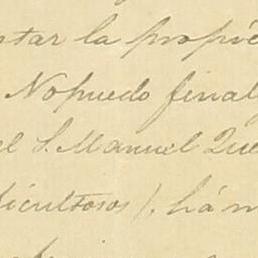 ntar la propie
Nopuedo final
el S. Manuel Que
dicultosos), há m